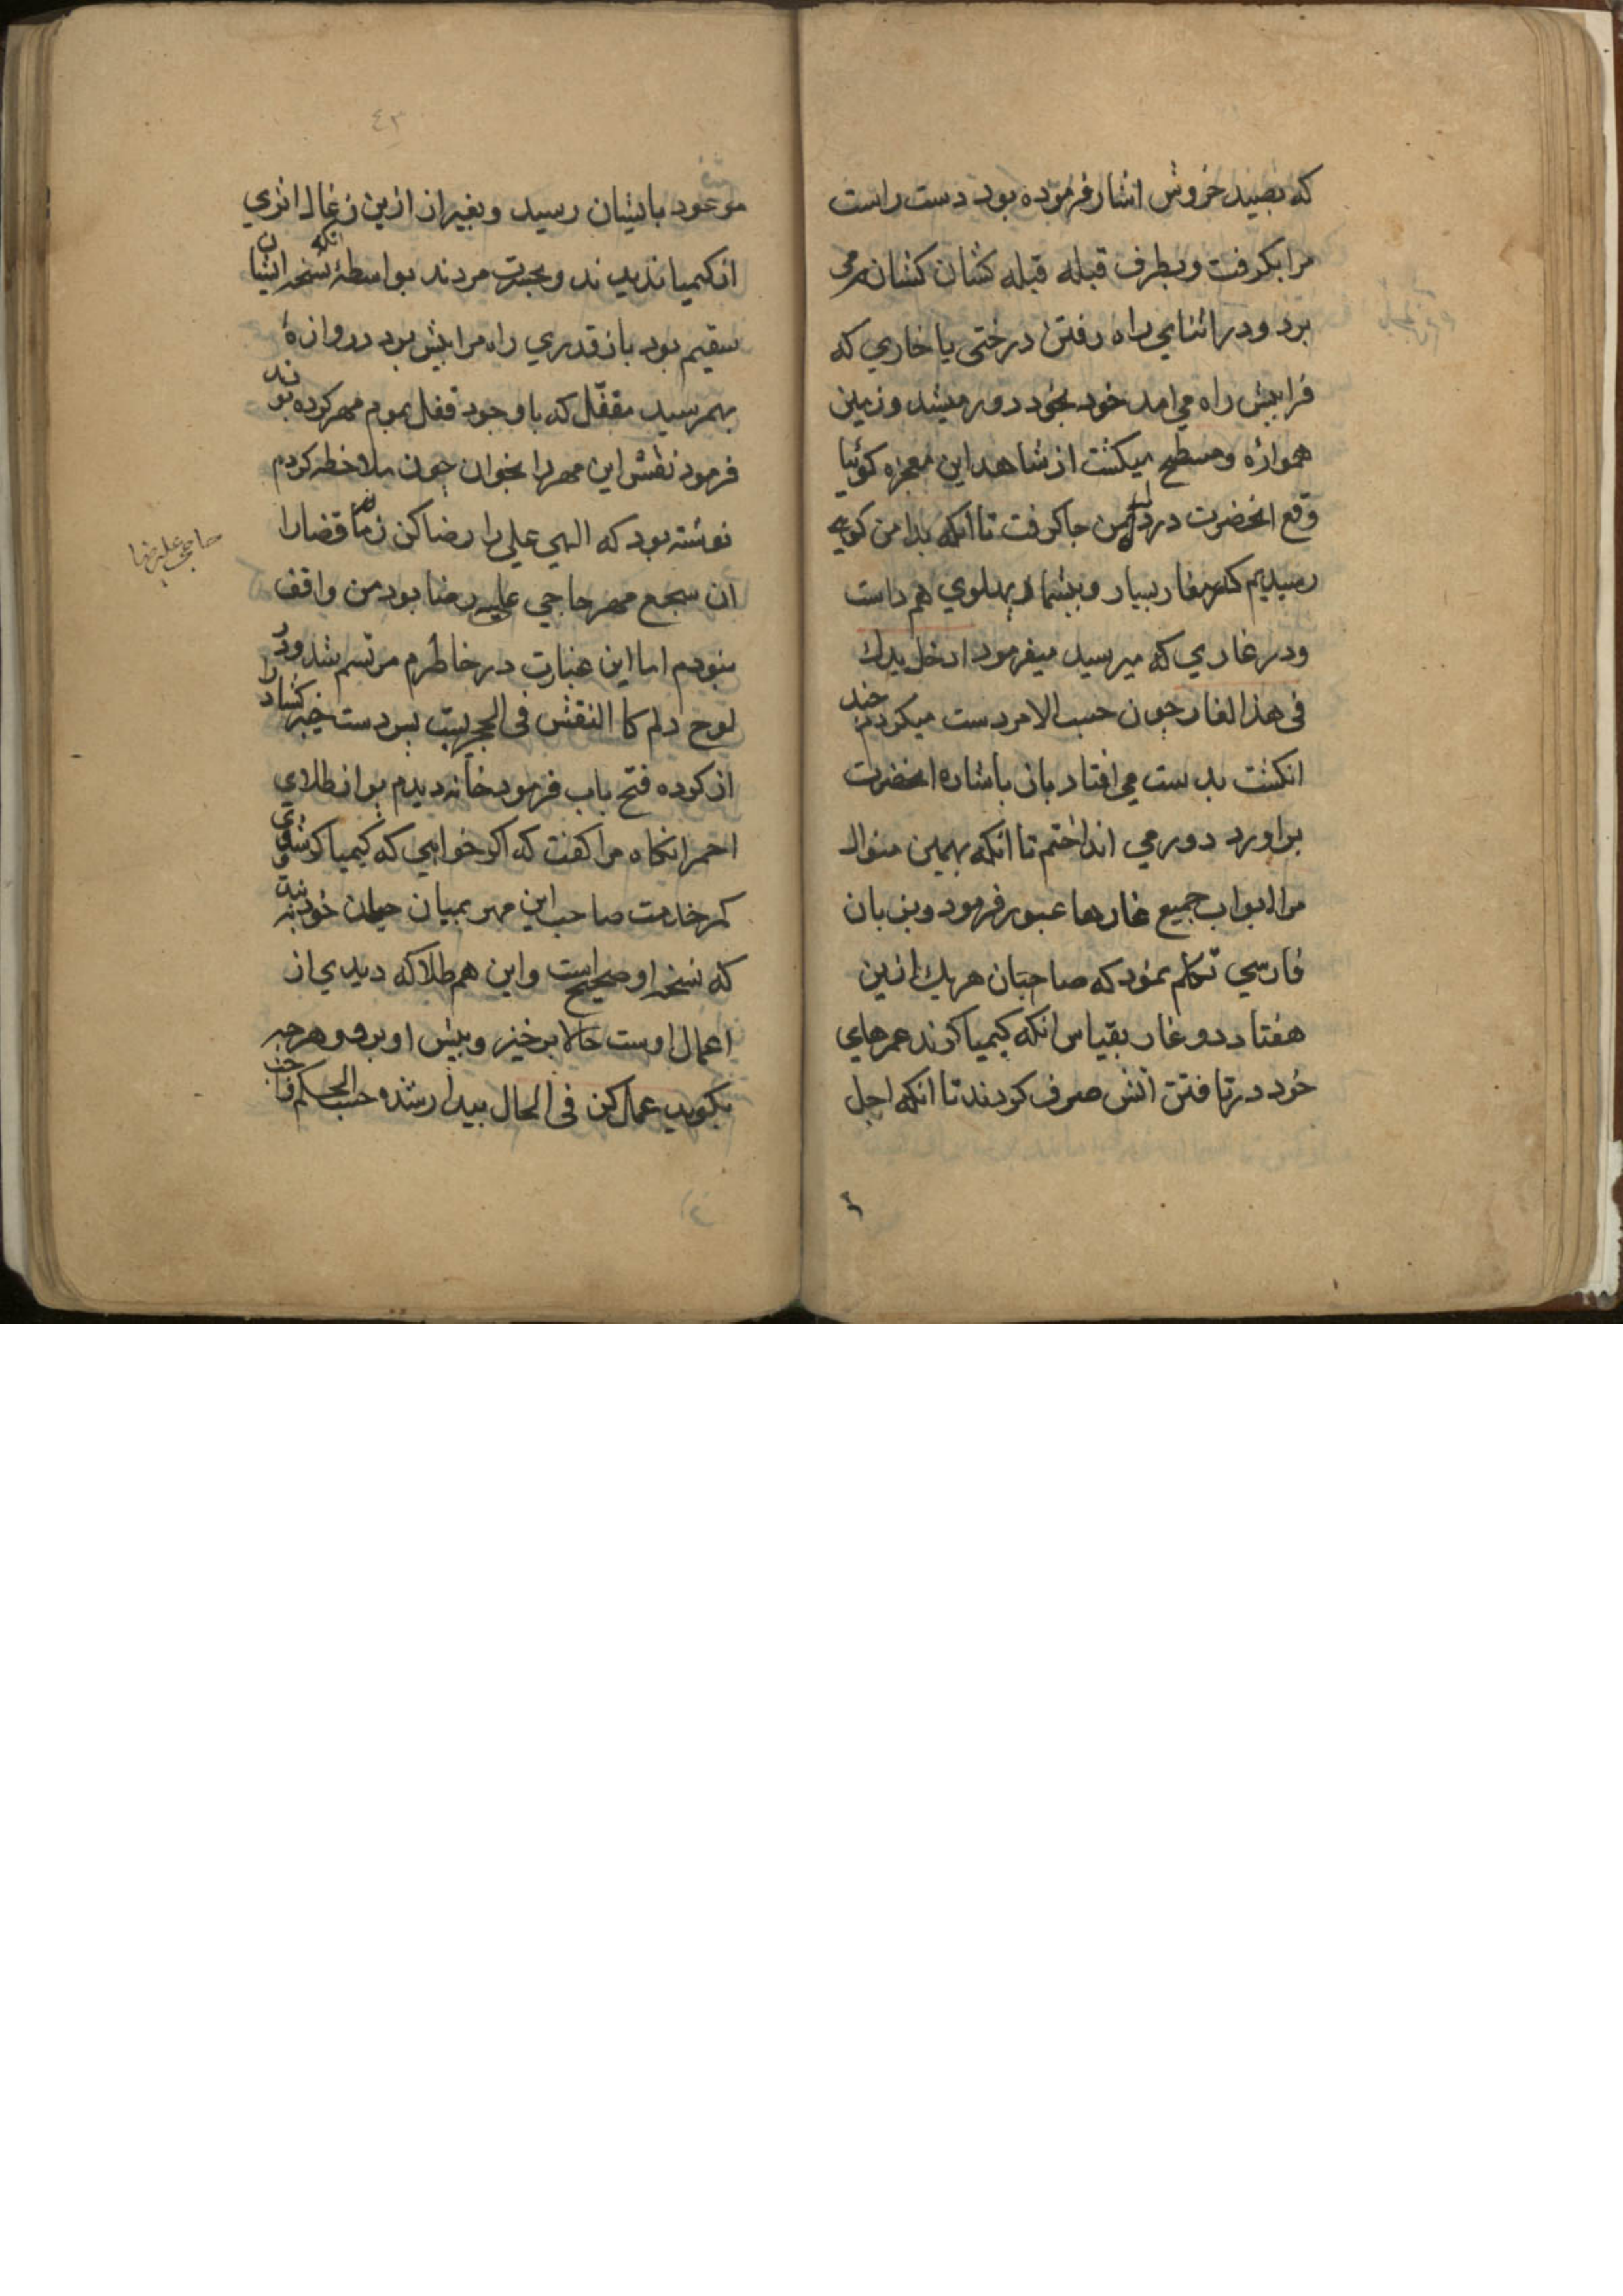 که بصیند خروش اشار فرموده بود دست راست
مرا بکرفت و بطرف قبله قبله کشان کشان می
برد و در اثنای راه رفتن درختی یا خاری که
فرا پیش راه می امد خود بخود دور میشد و زمین
همواره و مسطح میکشت از شاهد این معجزه کوئیا
وقع انحضرت در دل من جا کرفت تا انکه بدامن کوهی
رسیدیم که غار بسیار و بیشمار پهلوی هم داست
و در غاری که میرسید میفرمود ادخل یدك
فی هذا الغار چون حسب الامر دست میکردم چند
انکشت بدست می افتاد بان باشاره انحضرت
براورد دور می انداختم تا انکه بهمین منوال
مرا ابواب جمیع غارها عبور فرمود و بزبان
فارسی تکلم نمود که صاحبان هر یك ازین
هفتاد دو غار بقیاس انکه کیمیا کرند عمرهای
خود در تافتن اتش صرف کردند تا انکه اجل
٤٣
موعود بایشان رسید و بغیر از ازین زغال اثری
از کیمیا ندیدند و بحسرت مردند بواسطهٔ انکه نسخه ایشان
سقیم بود باز قدری راه مرا پیش برد دروازهٔ
بهم رسید مقفّل که با وجود قفل بموم مهر کرده بودند
فرمود نقش این مهر را بخوان چون ملاحظه کردم
نوشته بود که الهی علی را رضا کن ز ما قضا را
ان سجع مهر حاجی علیرضا بود من واقف
نبودم اما این عبارت در خاطرم مرتسم شد و در
لوح دلم کا النقش فی الحجر بست پس دست خیبر کشا را
از کرده فتح باب فرمود خانه دیدم پر از طلای
احمر انکاه مرا کفت که اکر خواهی که کیمیا کر شوی
کمر خدمت صاحب این مهر بمیان جان خود بند
که نسخه او صحیح است و این هم طلا که دیدی از
اعمال اوست حالا برخیز و پیش او برو و هر چه
بکوید عمل کن فی الحال بیدار شد و حسب الحکم
حاجی علیرضا